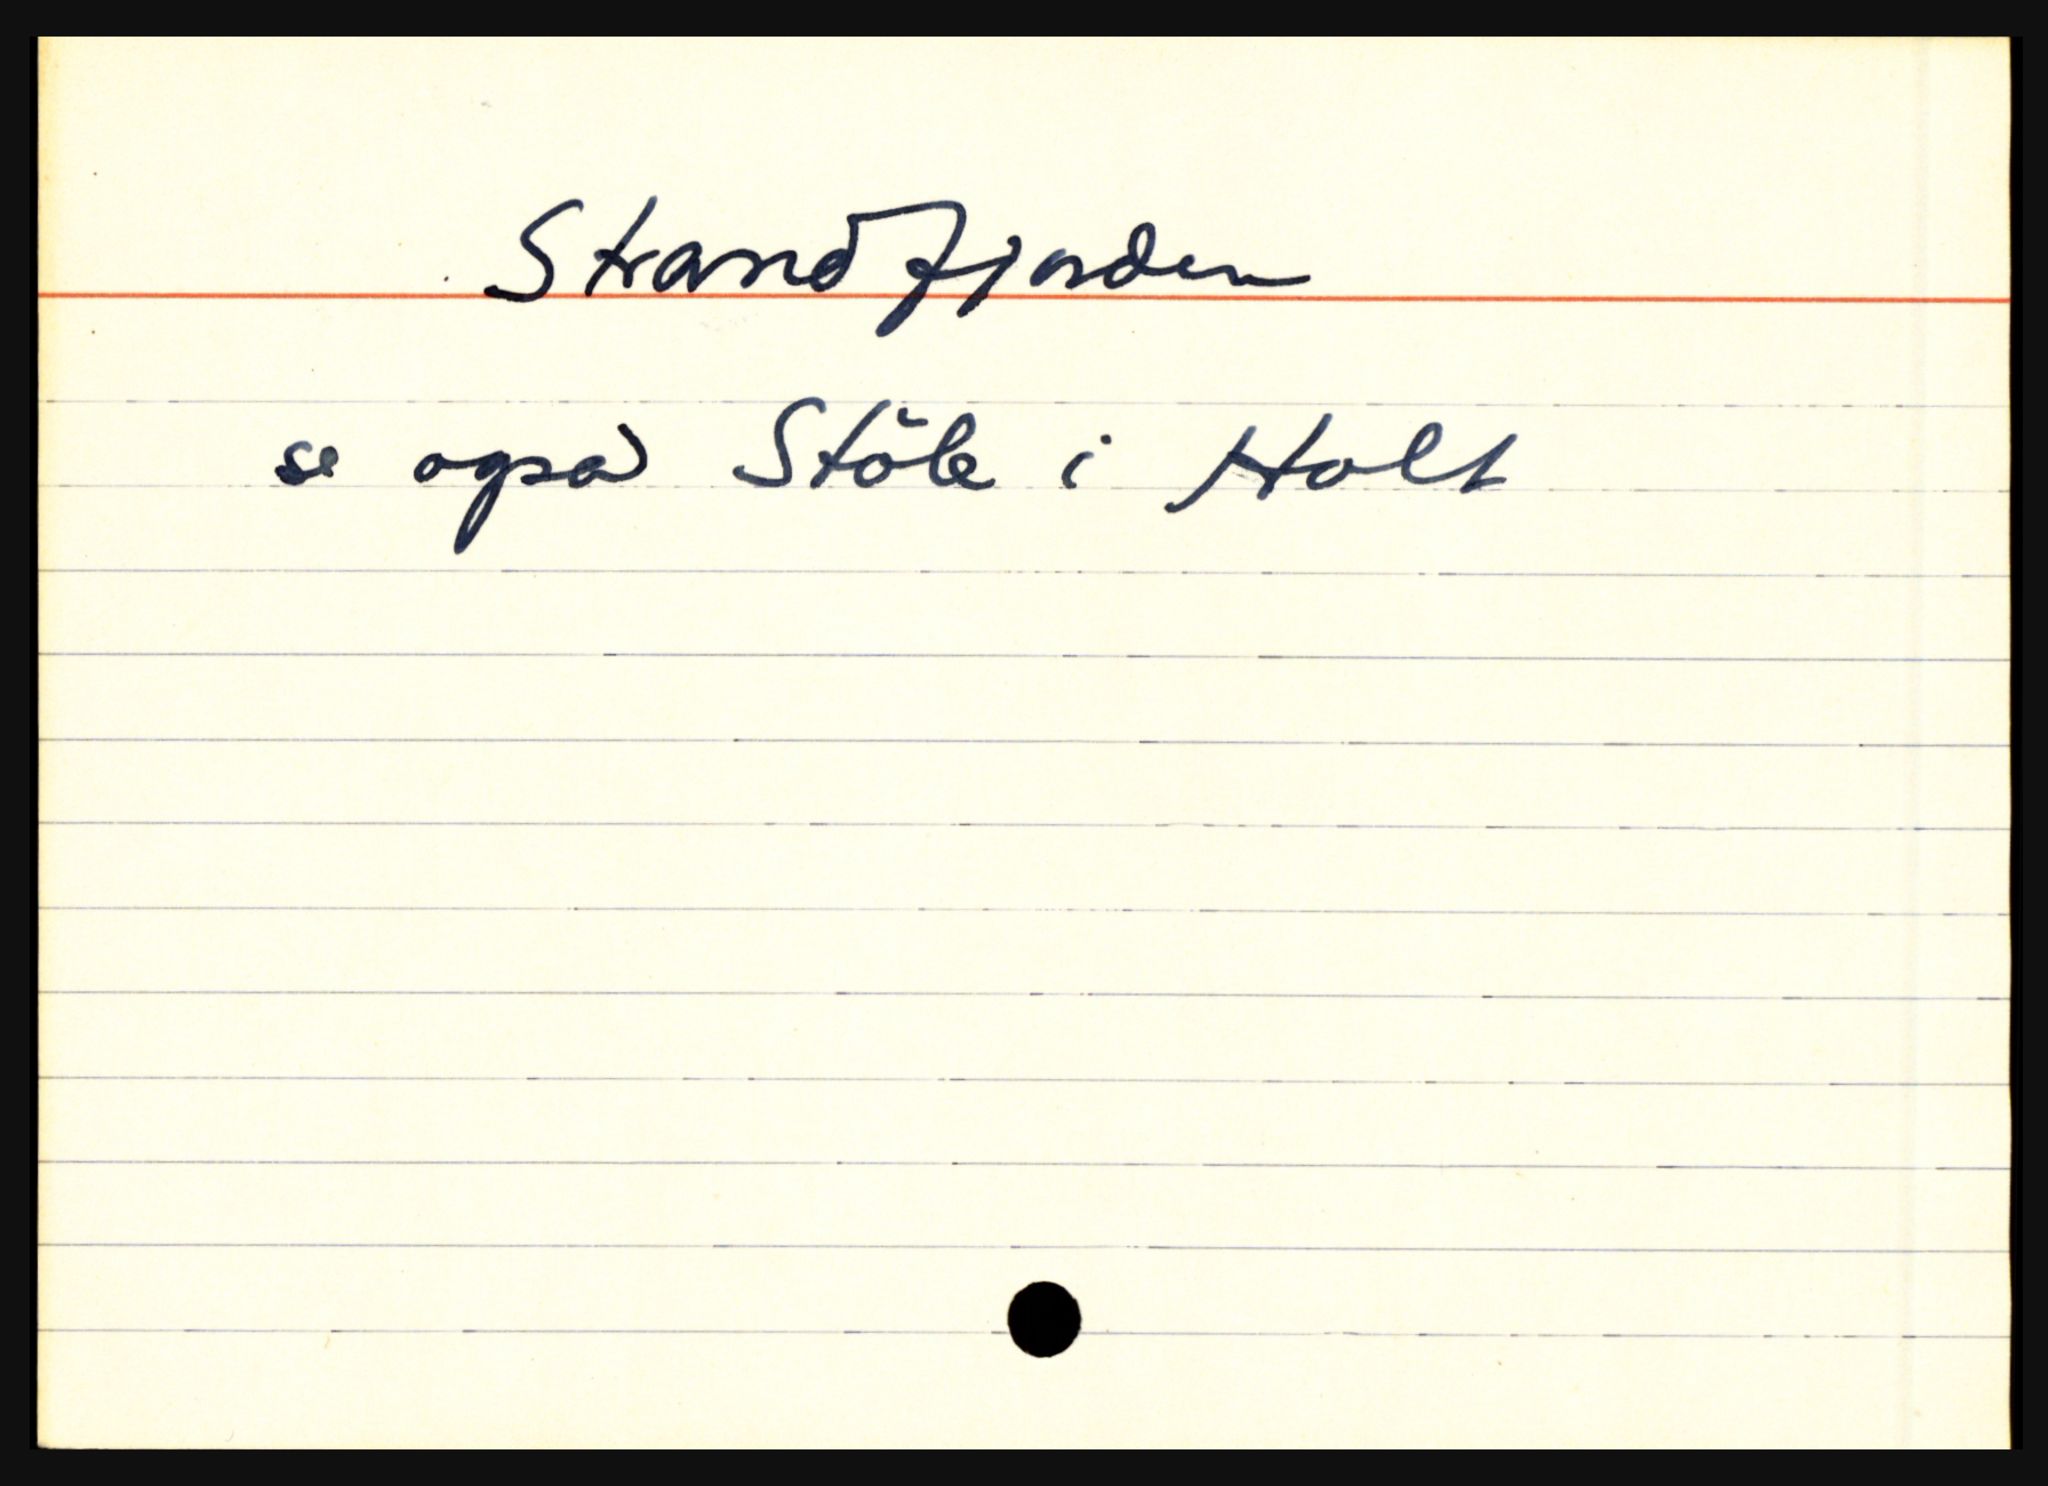 Strandfjorden
se også Støle i Holt